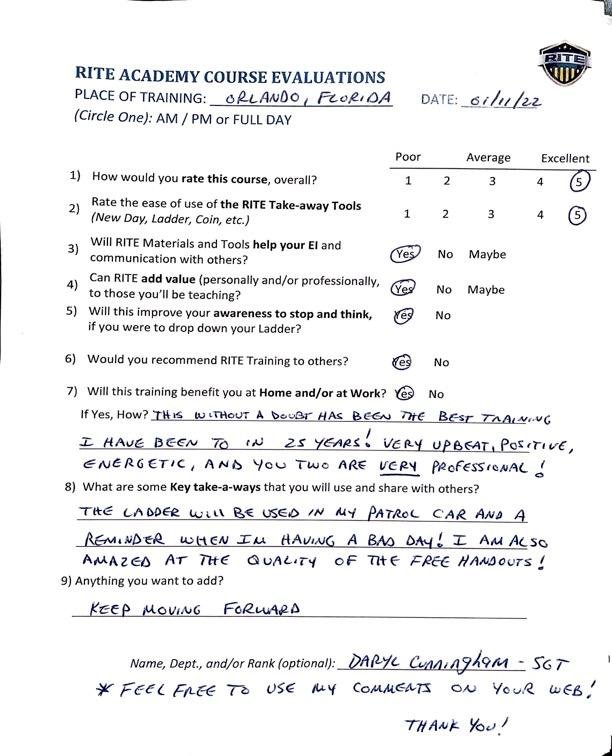 RITE
RITE ACADEMY COURSE EVALUATIONS
PLACE OF TRAINING: ORLANDO, FLORIDA DATE: 01/11/22
(Circle One): AM / PM or FULL DAY
Poor Average Excellent
1) How would you rate this course, overall? 1 2 3 4 5
2) Rate the ease of use of the RITE Take-away Tools 1 2 3 4 5
(New Day, Ladder, Coin, etc.)
3) Will RITE Materials and Tools help your EI and Yes No Maybe
communication with others?
4) Can RITE add value (personally and/or professionally, Yes No Maybe
to those you'll be teaching?
5) Will this improve your awareness to stop and think, Yes No
if you were to drop down your Ladder?
6) Would you recommend RITE Training to others? Yes No
7) Will this training benefit you at Home and/or at Work? Yes No
If Yes, How? THIS WITHOUT A DOUBT HAS BEEN THE BEST TRAINING
I HAVE BEEN TO IN 25 YEARS! VERY UPBEAT, POSITIVE,
ENERGETIC, AND YOU TWO ARE VERY PROFESSIONAL!
8) What are some Key take-a-ways that you will use and share with others?
THE LADDER WILL BE USED IN MY PATROL CAR AND A
REMINDER WHEN IM HAVING A BAD DAY! I AM ALSO
AMAZED AT THE QUALITY OF THE FREE HANDOUTS!
9) Anything you want to add?
KEEP MOVING FORWARD
Name, Dept., and/or Rank (optional): DARYL CUNNINGHAM - SGT
* FEEL FREE TO USE MY COMMENTS ON YOUR WEB!
THANK YOU!